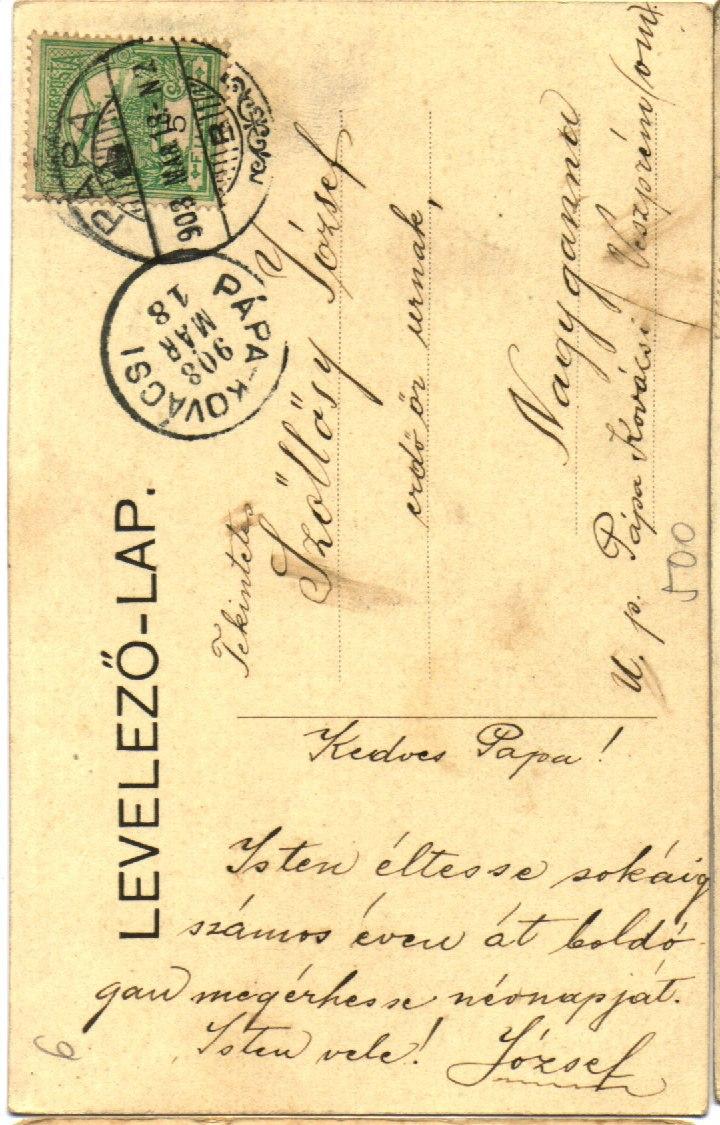 LEVELEZŐ-LAP.
PÁPA
908 MÁR 18 - N7
PÁPA-KOVÁCSI
908
MÁR
18
Tekintetes
Szöllősy József
erdő őr urnak,
Nagyganna
U. p. Pápa Kovácsi Veszprém (om)
500
Kedves Papa!
Isten éltesse sokáig
számos éven át boldo-
gan megérhesse névnapját.
Isten vele! József
6